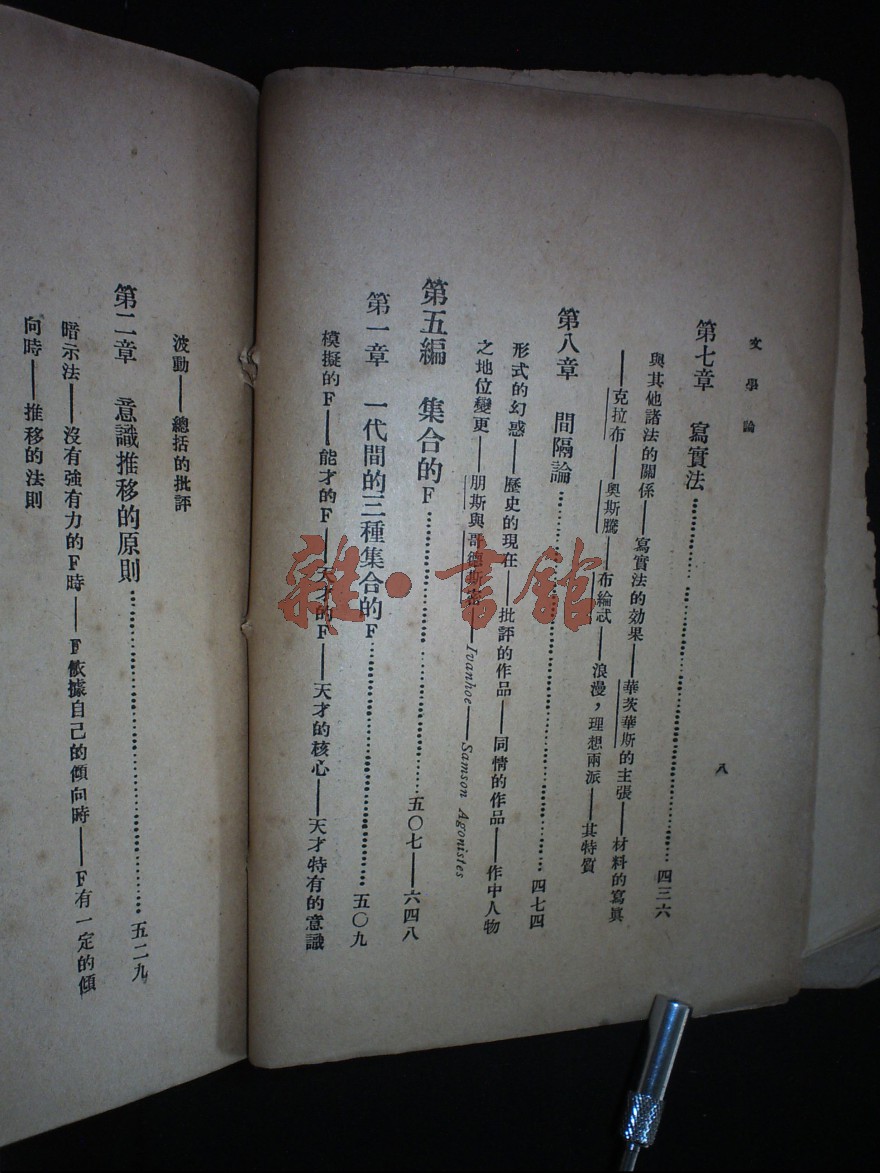 文學論
八
第七章　寫實法……四三六
與其他諸法的關係——寫實法的效果——華茨華斯的主張——材料的寫眞
——克拉布——奧斯騰——布綸忒——浪漫，理想兩派——其特質
第八章　間隔論……四七四
形式的幻惑——歷史的現在——批評的作品——同情的作品——作中人物
之地位變更——朋斯與哥德斯密——Ivanhoe——Samson Agonistes
第五編　集合的F……五〇七——六四八
第一章　一代間的三種集合的F……五〇九
模擬的F——能才的F——天才的F——天才的核心——天才特有的意識
波動——總括的批評
第二章　意識推移的原則……五二九
暗示法——沒有強有力的F時——F依據自己的傾向時——F有一定的傾
向時——推移的法則
雜·書館